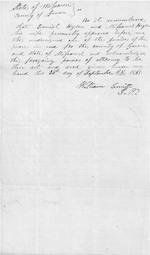 State of Missouri
County of Greene
Be it remembered
that Daniel Hyder and Missouri Hyder
his wife personally appeared before me
the undersigned one of the justice of the
peace in and for the county of Greene
and State of Missouri and acknowledged
this foregoing power of attorney to be
their act and deed given under my
hand this 28th day of September A.D. 1881
William
J. P.